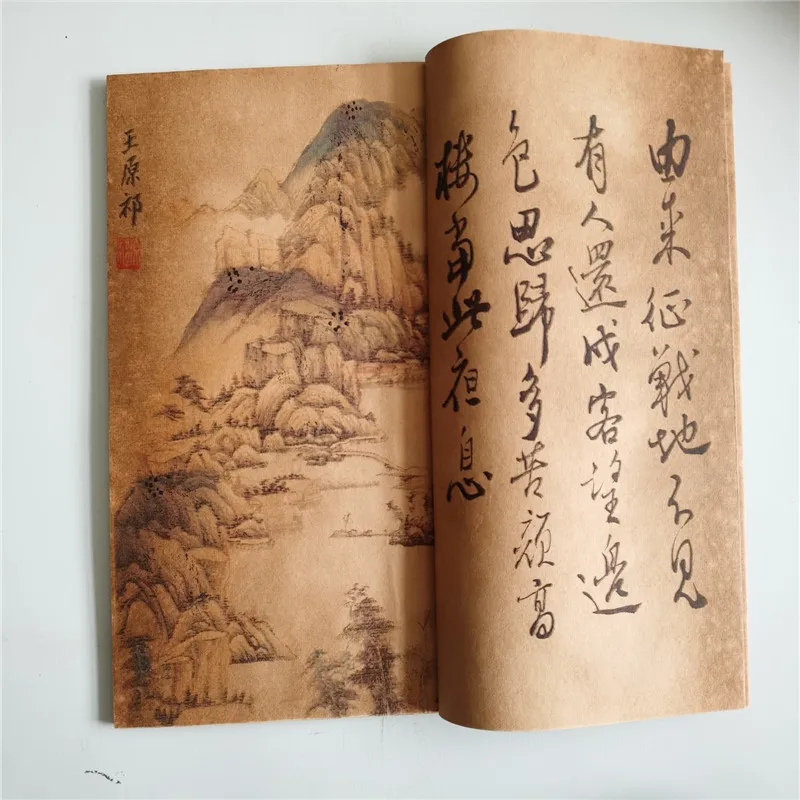 由来征戰地不見
有人還戍客望邊
色思歸多苦顏高
樓當此夜息
王原祁